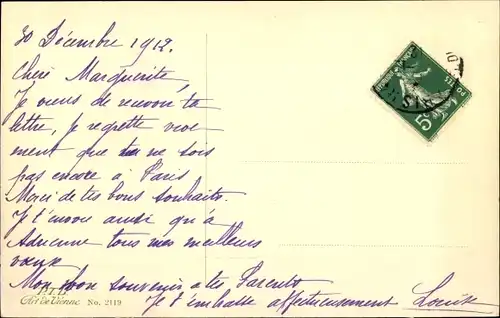 30 Décembre 1912.
Chère Marguerite,
Je viens de recevoir ta
lettre, je regrette vive
ment que tu ne sois
pas encore à Paris
Merci de tes bons souhaits.
Je t'envoie ainsi qu'à
Adrienne tous mes meilleurs
vœux
Mon bon souvenir à tes Parents
Je t'embrasse affectueusement Louis
Art de Vienne No. 2119
5c
POSTES